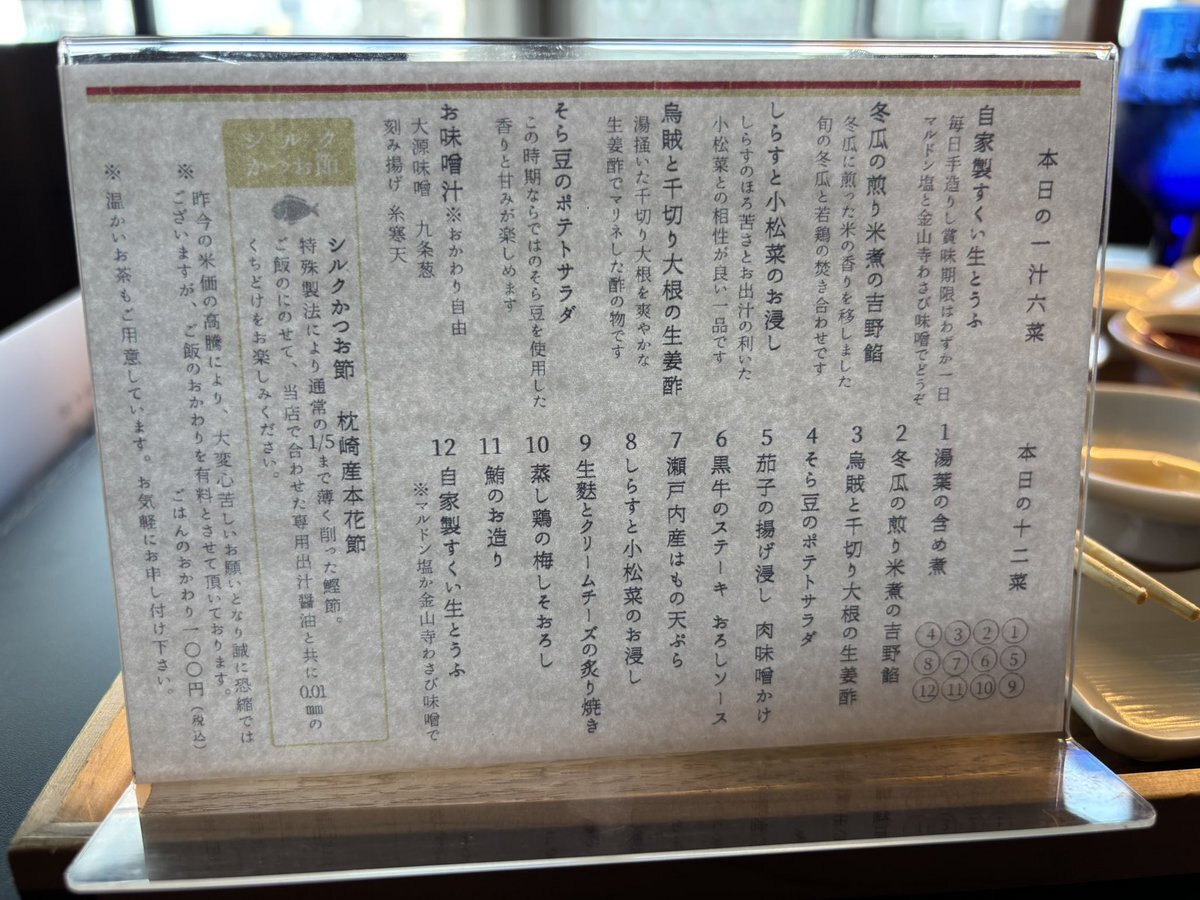 本日の一汁六菜
自家製すくい生とうふ
毎日手造りし賞味期限はわずか一日
マルドン塩と金山寺わさび味噌でどうぞ
冬瓜の煎り米煮の吉野餡
冬瓜に煎った米の香りを移しました
旬の冬瓜と若鶏の焚き合わせです
しらすと小松菜のお浸し
しらすのほろ苦さとお出汁の利いた
小松菜との相性が良い一品です
烏賊と千切り大根の生姜酢
湯掻いた千切り大根を爽やかな
生姜酢でマリネした酢の物です
そら豆のポテトサラダ
この時期ならではのそら豆を使用した
香りと甘みが楽しめます
お味噌汁※おかわり自由
大源味噌 九条葱
刻み揚げ 糸寒天
本日の十二菜
①②③④
⑤⑥⑦⑧
⑨⑩⑪⑫
1 湯葉の含め煮
2 冬瓜の煎り米煮の吉野餡
3 烏賊と千切り大根の生姜酢
4 そら豆のポテトサラダ
5 茄子の揚げ浸し 肉味噌かけ
6 黒牛のステーキ おろしソース
7 瀬戸内産はもの天ぷら
8 しらすと小松菜のお浸し
9 生麩とクリームチーズの炙り焼き
10 蒸し鶏の梅しそおろし
11 鮪のお造り
12 自家製すくい生とうふ
※マルドン塩か金山寺わさび味噌で
シルク
かつお節
シルクかつお節 枕崎産本花節
特殊製法により通常の1/5まで薄く削った鰹節。
ご飯にのせて、当店で合わせた専用出汁醤油と共に0.01㎜の
くちどけをお楽しみください。
※昨今の米価の高騰により、大変心苦しいお願いとなり誠に恐縮では
ございますが、ご飯のおかわりを有料とさせて頂いております。
ごはんのおかわり一〇〇円(税込)
※温かいお茶もご用意しています。お気軽にお申し付け下さい。